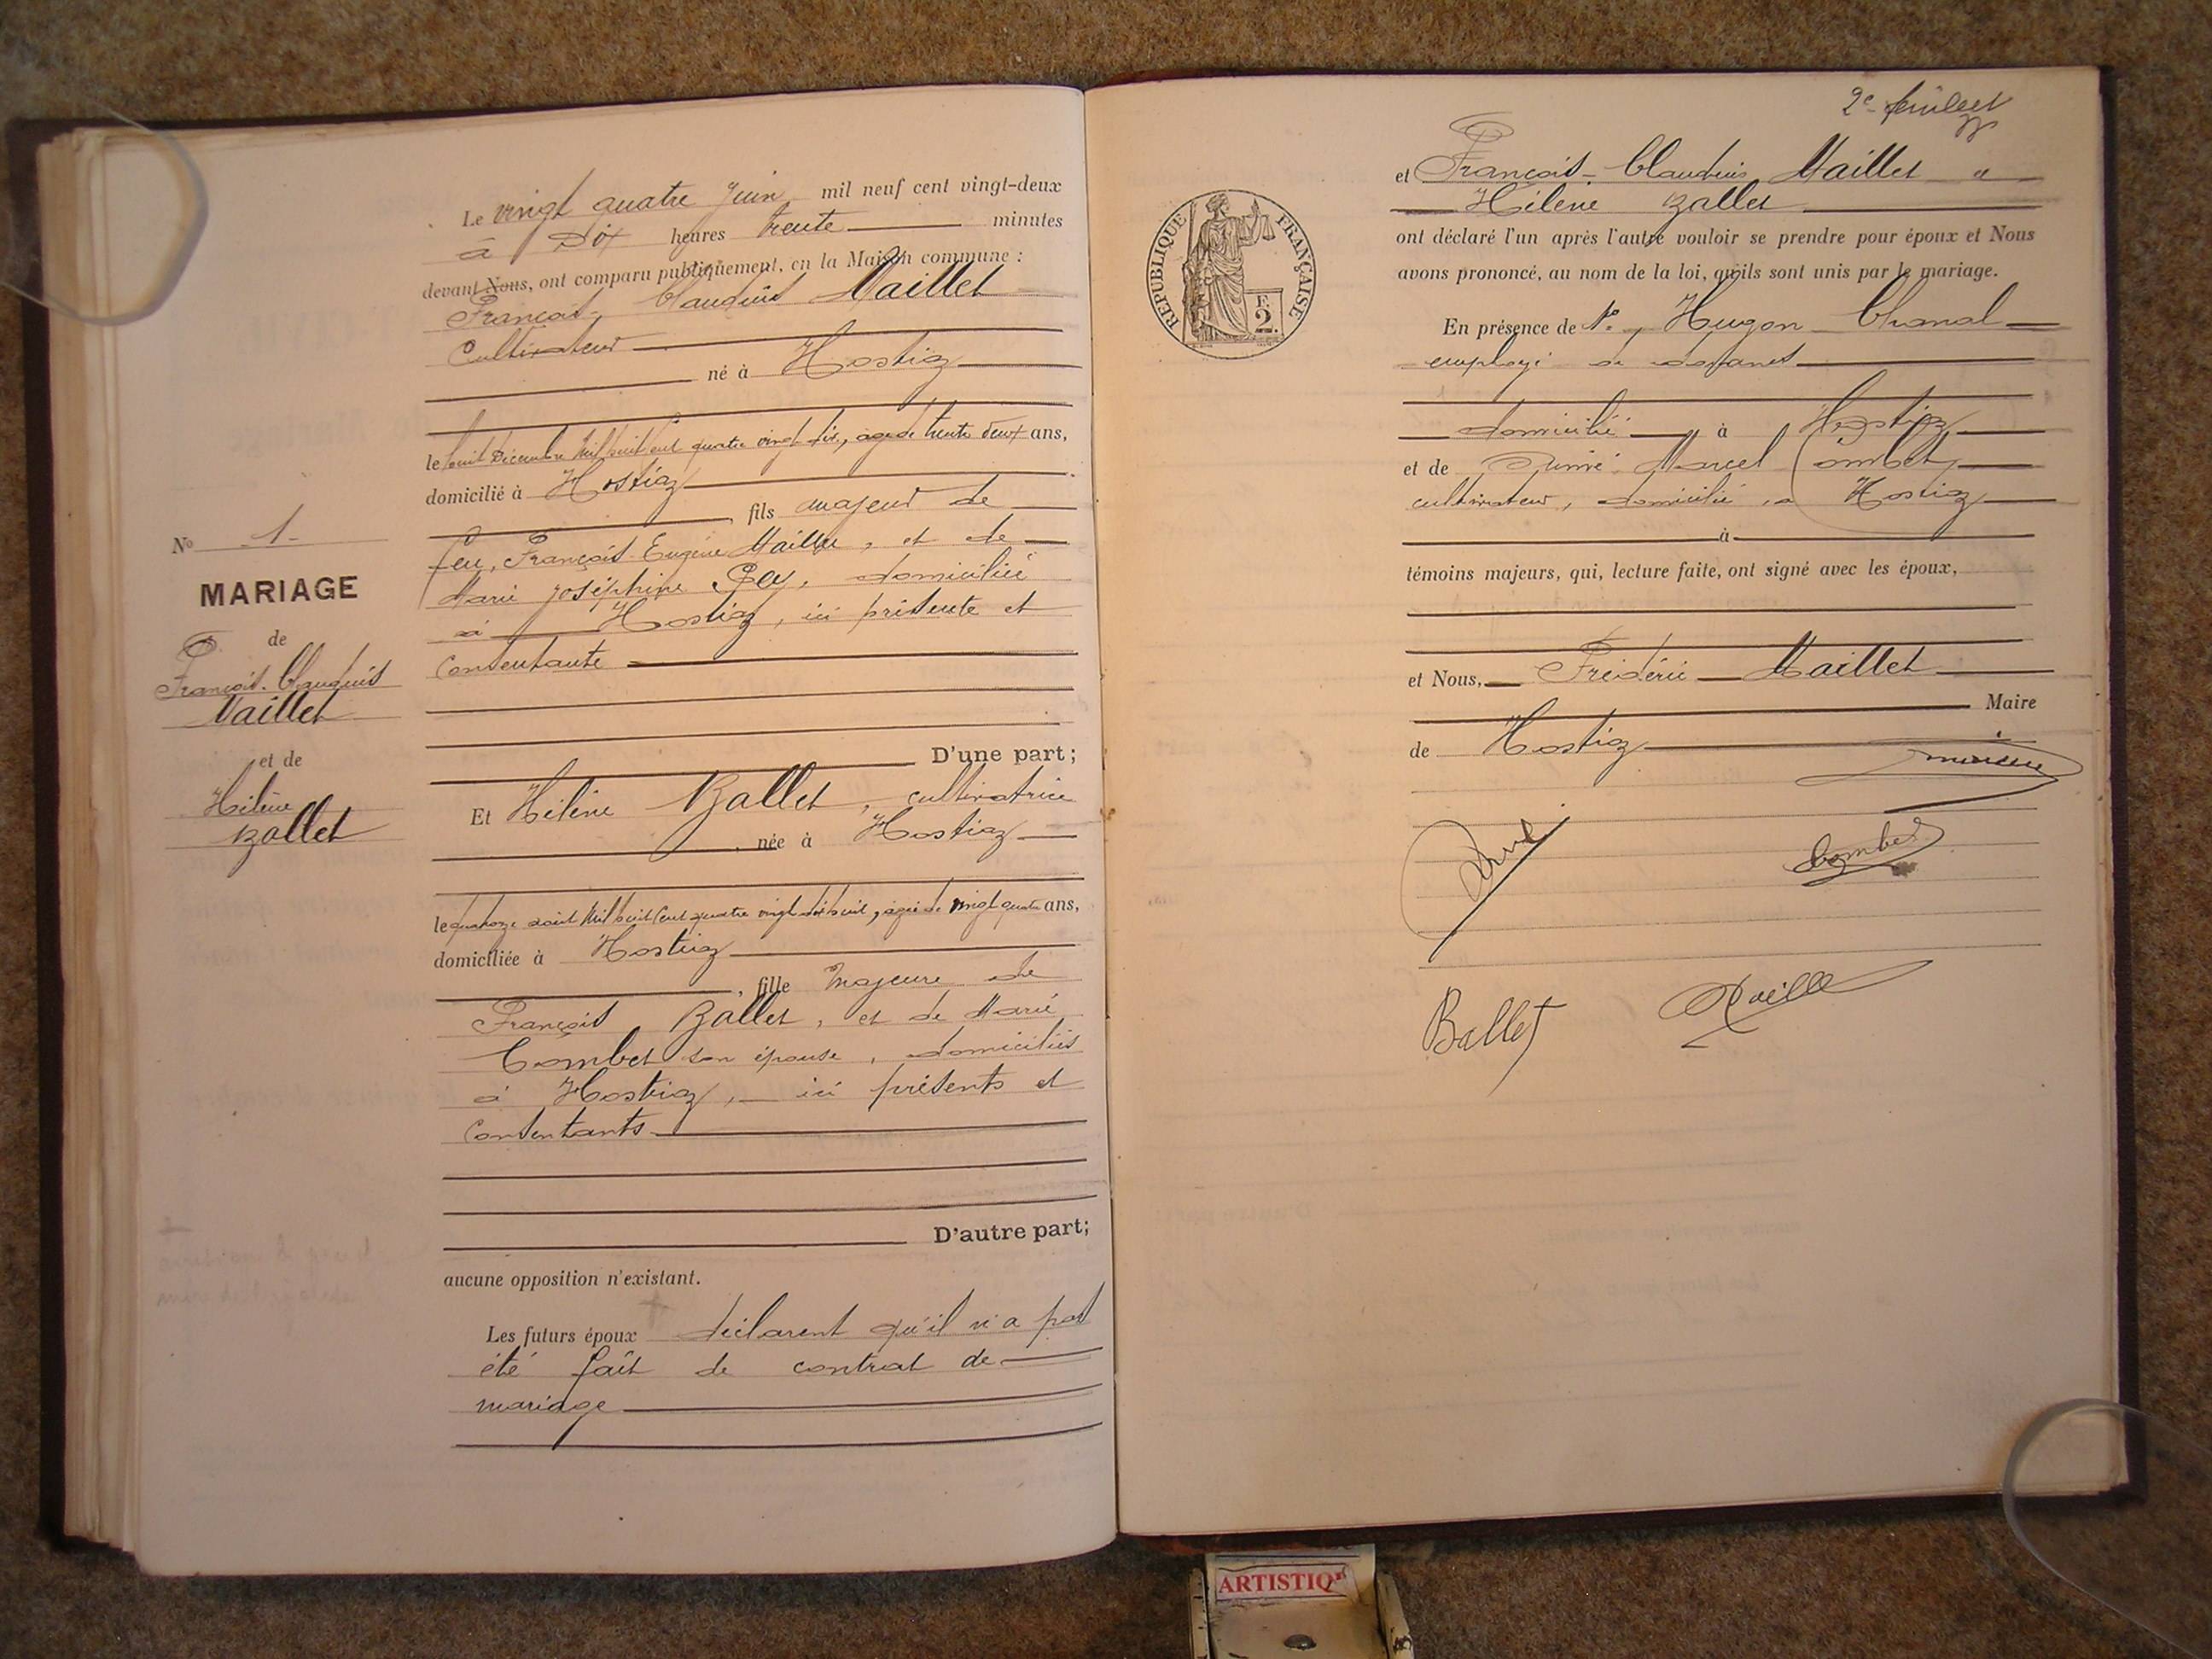 N° 1
MARIAGE
de
François-Claudius
Maillet
et de
Hélène
Ballet
Le vingt quatre Juin mil neuf cent vingt-deux
à Dix heures trente minutes
devant Nous, ont comparu publiquement, en la Maison commune :
François-Claudius Maillet
Cultivateur
né à Hostiaz
le huit Décembre Mil huit cent quatre vingt dix, âgé de trente deux ans,
domicilié à Hostiaz
, fils majeur de
feu, François-Eugène Maillet, et de
Marie Joséphine Rey, domiciliée
à Hostiaz, ici présente et
consentante
D'une part;
Et Hélène Ballet, cultivatrice
, née à Hostiaz
le quatorze août Mil huit Cent quatre vingt dix huit, âgée de vingt quatre ans,
domiciliée à Hostiaz
, fille majeure de
François Ballet, et de Marie
Combet son épouse, domiciliés
à Hostiaz, ici présents et
consentants
D'autre part;
aucune opposition n'existant.
Les futurs époux déclarent qu'il n'a pas
été fait de contrat de
mariage
2e feuillet
RÉPUBLIQUE FRANÇAISE
F.
2.
et François-Claudius Maillet et
Hélène Ballet
ont déclaré l'un après l'autre vouloir se prendre pour époux et Nous
avons prononcé, au nom de la loi, qu'ils sont unis par le mariage.
En présence de Hugon
employé
domicilié à Hostiaz
et de Aimé Marcel Combet,
cultivateur, domicilié à Hostiaz
à
témoins majeurs, qui, lecture faite, ont signé avec les époux,
et Nous, Frédéric Maillet
Maire
de Hostiaz
Combet
Ballet
ARTISTIQ